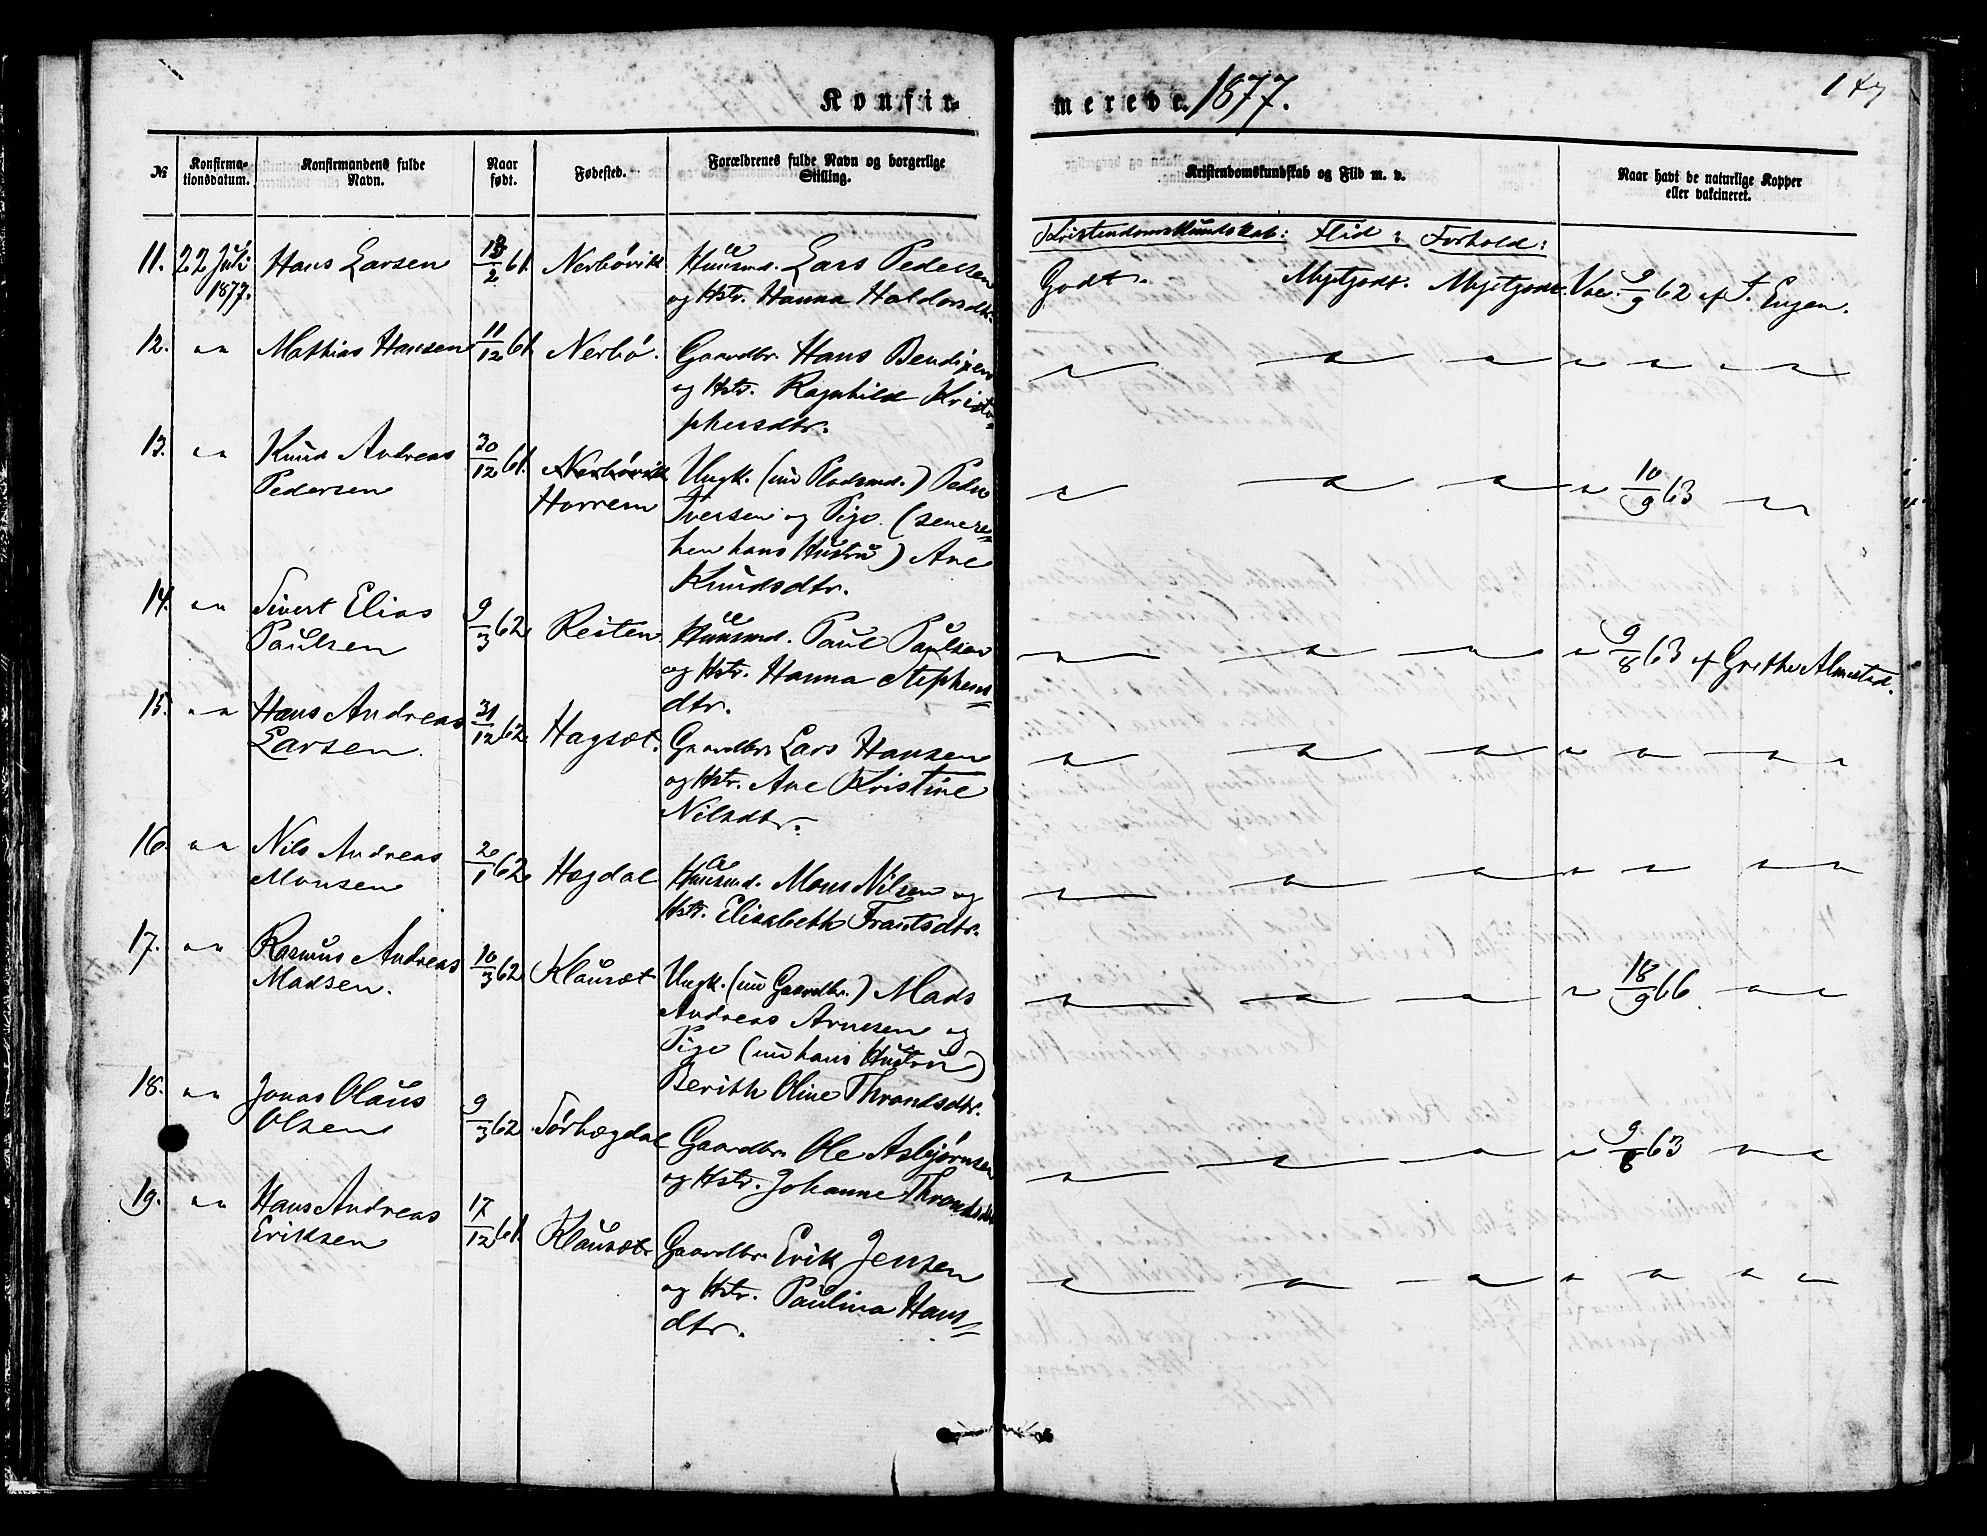 Konfir-
merede. 1877.
147
№
Konfirma-
tionsdatum.
Konfirmandens fulde
Navn.
Naar
født.
Fødested.
Forældrenes fulde Navn og borgerlige
Stilling.
Kristendomskundskab og Flid m. v.
Naar havt de naturlige Kopper
eller vakcineret.
Kristendomskundskab: Flid: Forhold:
11. 22 Juli Hans Larsen 13/2 61. Nerbövik Huusmd. Lars Pedersen
1877. og Hstr. Hanna Haldorsdtr.
Godt. Megetgodt. Megetgodt. Vac. 9/9 62 af J. Engen.
12. " Mathias Hansen 11/12 61. Nerbö. Gaardbr. Hans Bendixen
og Hstr. Ragnhild Kristo=
phersdtr.
13. " Knud Andreas 30/12 61. Nerbövik Ungk. (nu Pladsmd.) Peder
Pedersen Horrem Iversen og Pige (senere=
hen hans Hustru) Ane
Knudsdtr.
10/9 63
14. " Sivert Elias 9/3 62. Reiten Huusmd. Paul Paulsen
Paulsen og Hstr. Hanna Stephens=
dtr.
9/8 63 af Grethe Almestad.
15. " Hans Andreas 31/12 62. Hagsæt. Gaardbr. Lars Hansen
Larsen og Hstr. Ane Kristine
Nilsdtr.
16. " Nils Andreas 2/1 62. Hogdal Huusmd. Mons Nilsen og
Monsen Hstr. Elisabeth Frantsdtr.
17. " Rasmus Andreas 10/3 62. Klausæt Ungk. (nu Gaardbr.) Mads
Madsen. Andreas Arnesen og
Pige (nu hans Hustru)
Berith Oline Throndsdtr.
18/9 66.
18. " Jonas Olaus 9/3 62. Sörhogdal Gaardbr. Ole Asbjörnsen
Olsen og Hstr. Johanne Throndsdtr
9/8 63
19. " Hans Andreas 17/12 61. Klausæt Gaardbr. Erik Jensen
Eriksen og Hstr. Paulina Hans=
dtr.